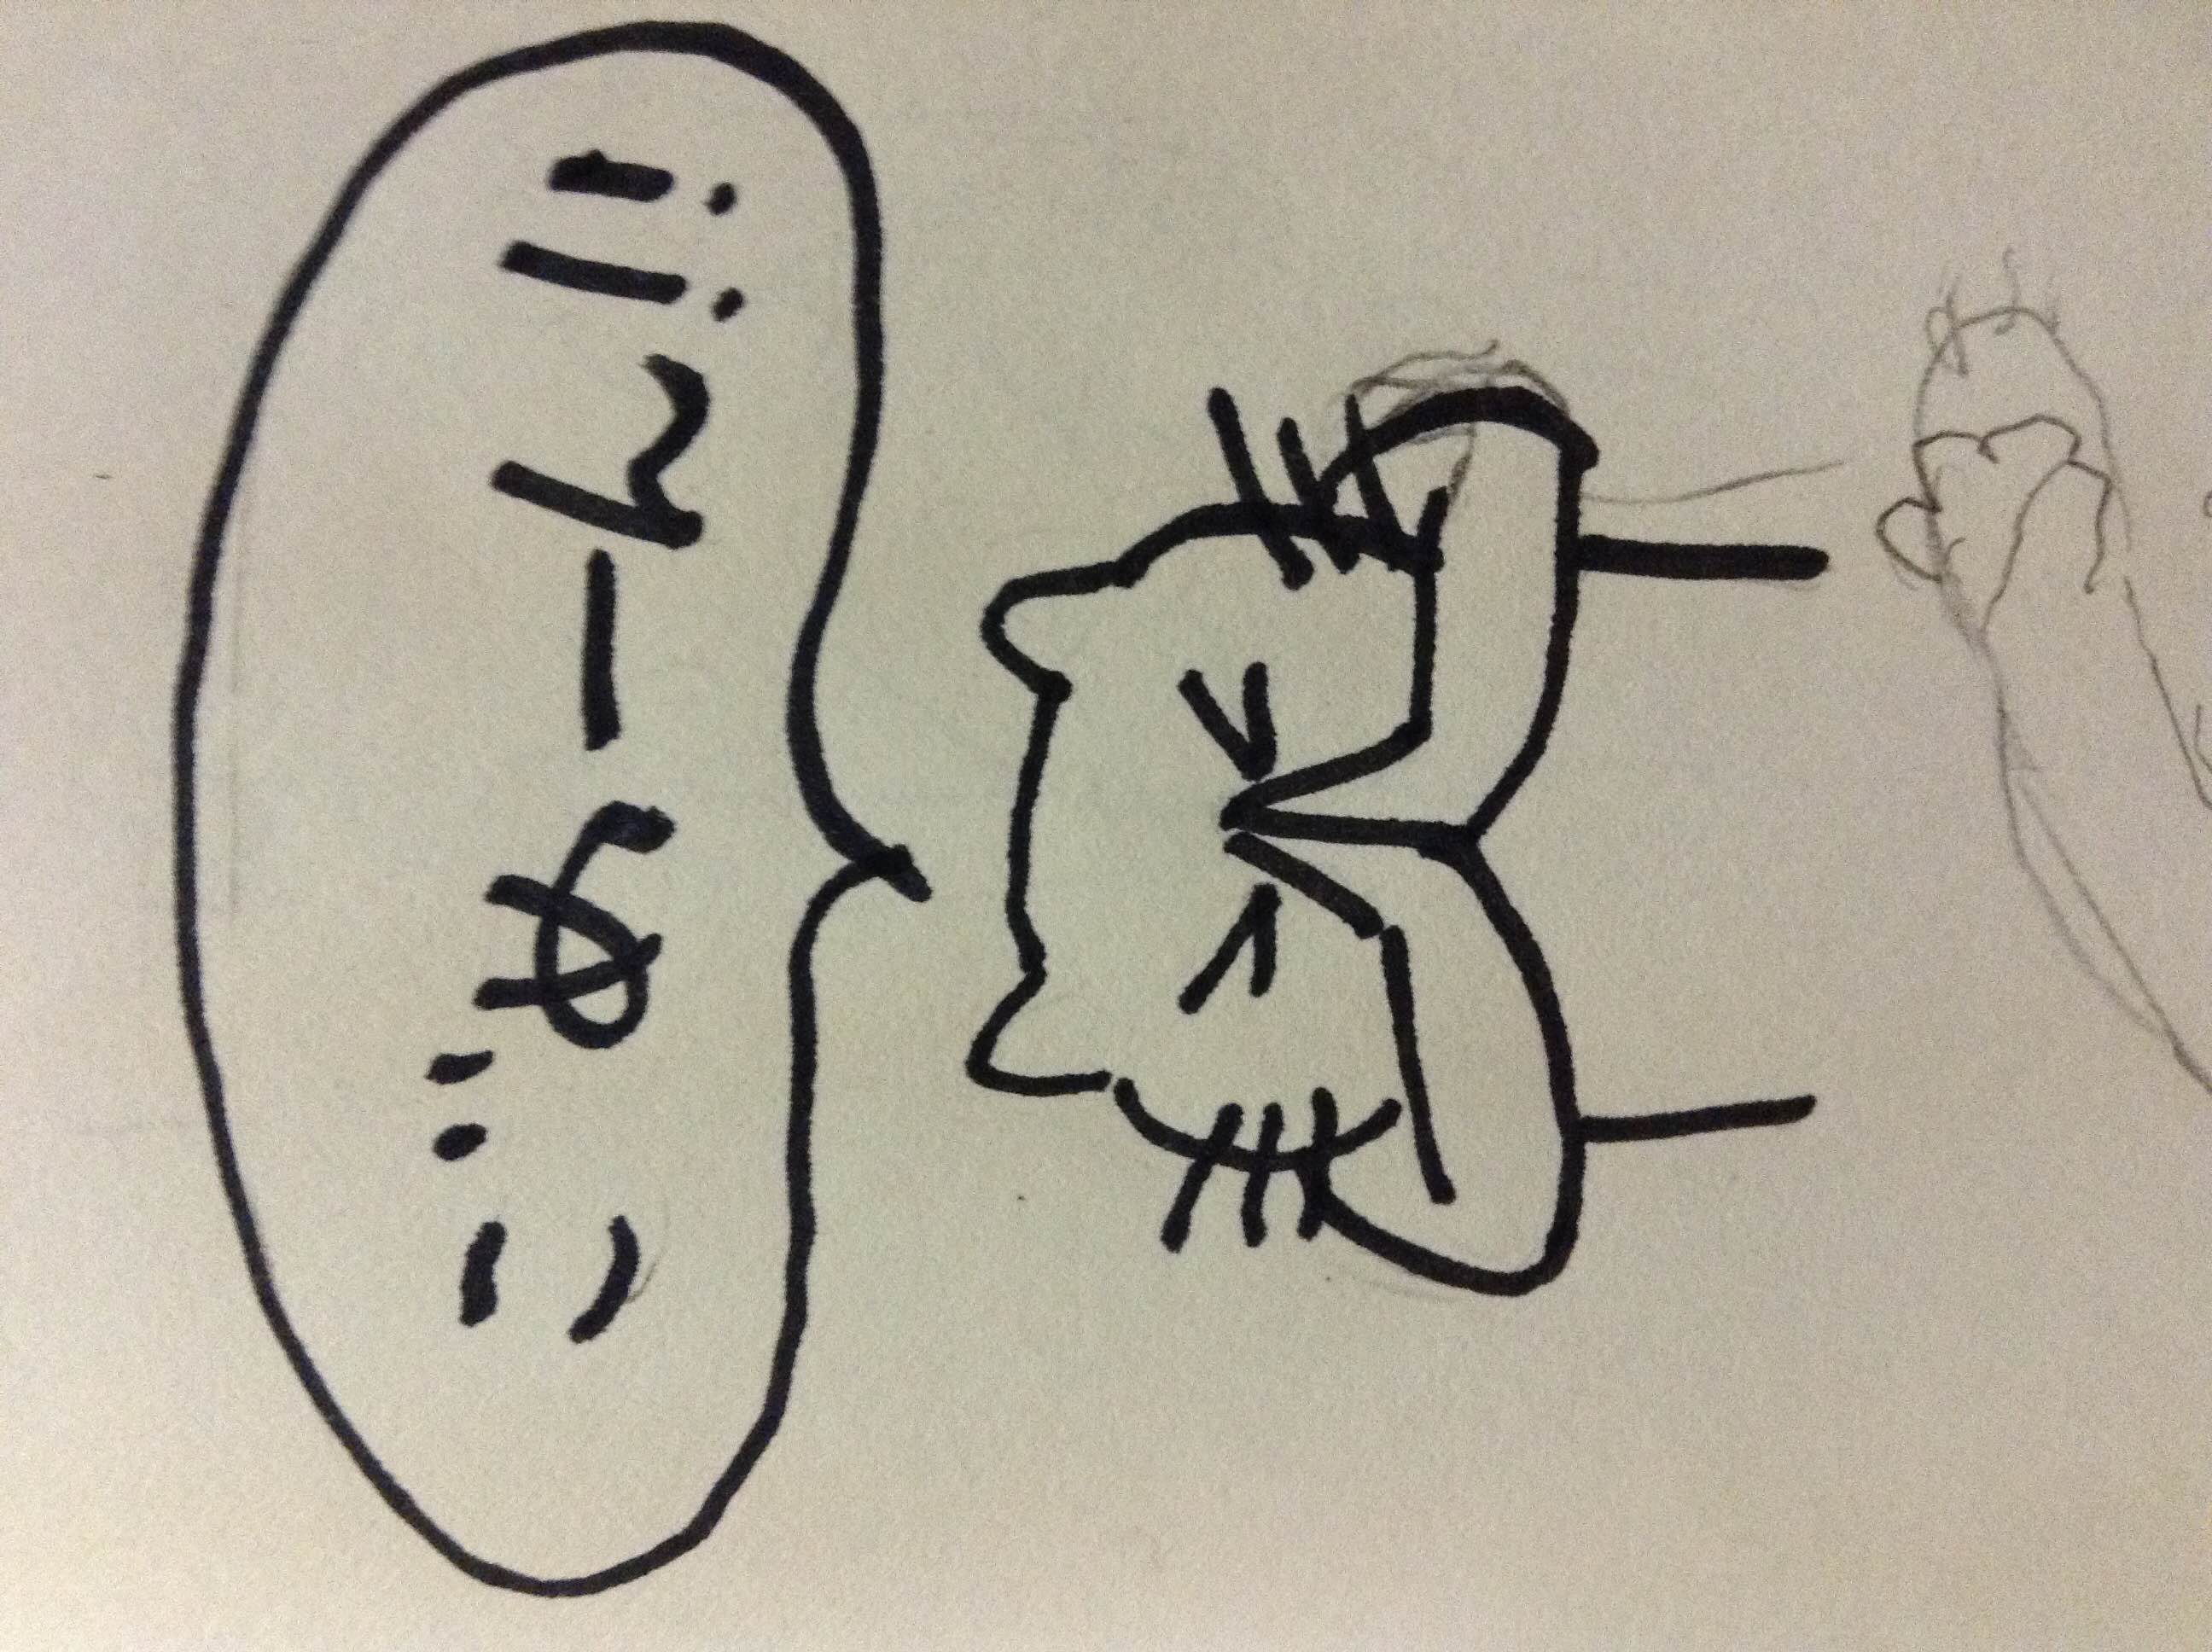 ごめーん!!